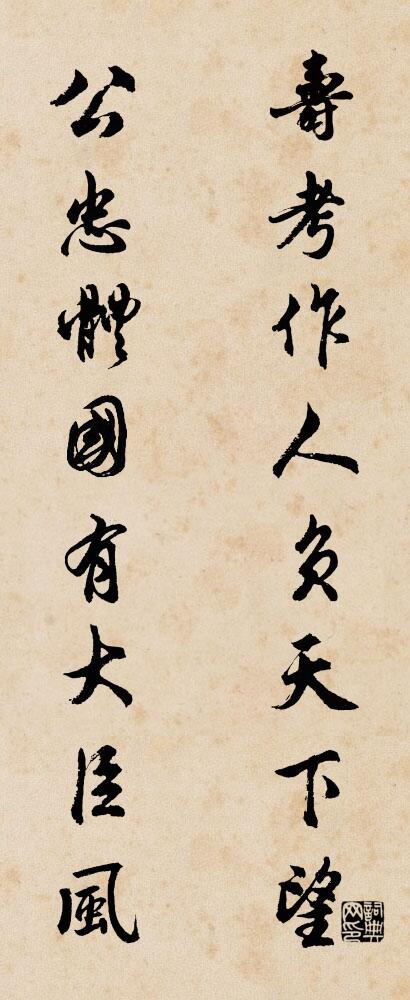 壽考作人負天下望
公忠體國有大臣風
詞典网印